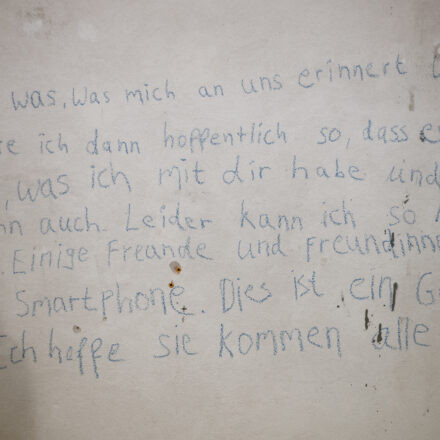 was, was mich an uns erinnert
ich dann hoffentlich so, dass
, was ich mit dir habe und
auch. Leider kann ich so
Einige Freande und freundinne
Smartphone. Dies ist ein G
Ich hoffe sie kommen alle